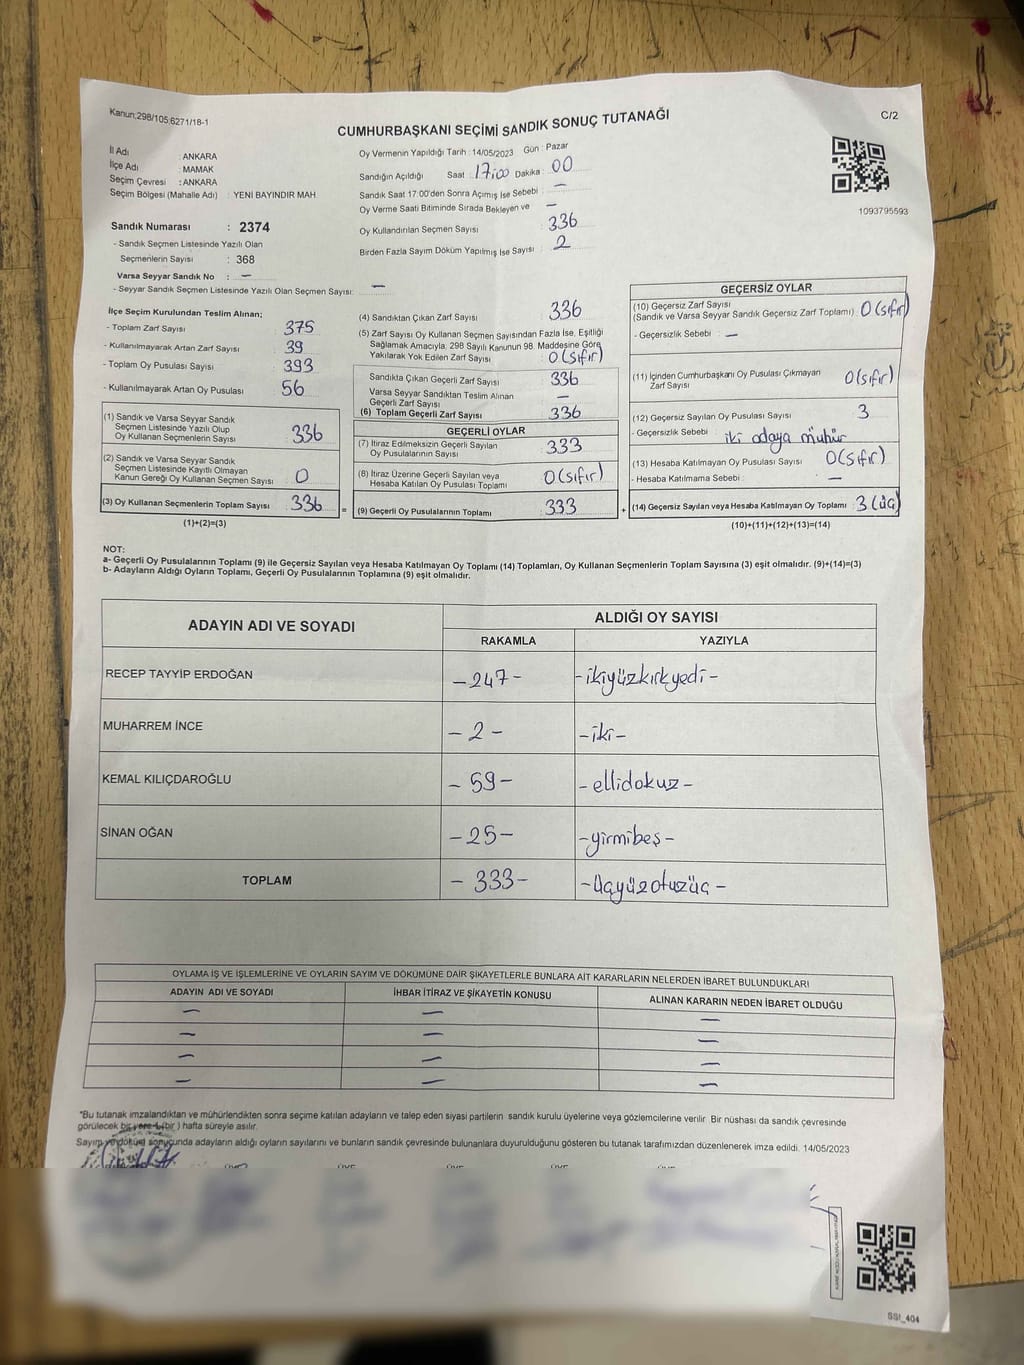 Kanun;298/105;6271/18-1
CUMHURBAŞKANI SEÇİMİ SANDIK SONUÇ TUTANAĞI
C/2
İl Adı : ANKARA
İlçe Adı : MAMAK
Seçim Çevresi : ANKARA
Seçim Bölgesi (Mahalle Adı) : YENİ BAYINDIR MAH.
Sandık Numarası : 2374
- Sandık Seçmen Listesinde Yazılı Olan
Seçmenlerin Sayısı : 368
Varsa Seyyar Sandık No : —
- Seyyar Sandık Seçmen Listesinde Yazılı Olan Seçmen Sayısı: —
Oy Vermenin Yapıldığı Tarih : 14/05/2023 Gün : Pazar
Sandığın Açıldığı Saat : 17:00 Dakika : 00
Sandık Saat 17:00'den Sonra Açımış İse Sebebi : —
Oy Verme Saati Bitiminde Sırada Bekleyen ve —
Oy Kullandırılan Seçmen Sayısı 336
Birden Fazla Sayım Döküm Yapılmış İse Sayısı : 2
1093795593
İlçe Seçim Kurulundan Teslim Alınan;
- Toplam Zarf Sayısı 375
- Kullanılmayarak Artan Zarf Sayısı 39
- Toplam Oy Pusulası Sayısı 393
- Kullanılmayarak Artan Oy Pusulası 56
(1) Sandık ve Varsa Seyyar Sandık
Seçmen Listesinde Yazılı Olup
Oy Kullanan Seçmenlerin Sayısı 336
(2) Sandık ve Varsa Seyyar Sandık
Seçmen Listesinde Kayıtlı Olmayan
Kanun Gereği Oy Kullanan Seçmen Sayısı 0
(3) Oy Kullanan Seçmenlerin Toplam Sayısı 336 =
(1)+(2)=(3)
(4) Sandıktan Çıkan Zarf Sayısı 336
(5) Zarf Sayısı Oy Kullanan Seçmen Sayısından Fazla İse, Eşitliği
Sağlamak Amacıyla, 298 Sayılı Kanunun 98. Maddesine Göre
Yakılarak Yok Edilen Zarf Sayısı 0 (sıfır)
Sandıkta Çıkan Geçerli Zarf Sayısı 336
Varsa Seyyar Sandıktan Teslim Alınan
Geçerli Zarf Sayısı —
(6) Toplam Geçerli Zarf Sayısı 336
GEÇERLİ OYLAR
(7) İtiraz Edilmeksizin Geçerli Sayılan
Oy Pusulalarının Sayısı 333
(8) İtiraz Üzerine Geçerli Sayılan veya
Hesaba Katılan Oy Pusulası Toplamı 0 (sıfır)
(9) Geçerli Oy Pusulalarının Toplamı 333 +
GEÇERSİZ OYLAR
(10) Geçersiz Zarf Sayısı
(Sandık ve Varsa Seyyar Sandık Geçersiz Zarf Toplamı) 0 (sıfır)
- Geçersizlik Sebebi : —
(11) İçinden Cumhurbaşkanı Oy Pusulası Çıkmayan
Zarf Sayısı 0 (sıfır)
(12) Geçersiz Sayılan Oy Pusulası Sayısı 3
- Geçersizlik Sebebi iki adaya mühür
(13) Hesaba Katılmayan Oy Pusulası Sayısı 0 (sıfır)
- Hesaba Katılmama Sebebi : —
(14) Geçersiz Sayılan veya Hesaba Katılmayan Oy Toplamı 3 (üç)
(10)+(11)+(12)+(13)=(14)
NOT:
a- Geçerli Oy Pusulalarının Toplamı (9) ile Geçersiz Sayılan veya Hesaba Katılmayan Oy Toplamı (14) Toplamları, Oy Kullanan Seçmenlerin Toplam Sayısına (3) eşit olmalıdır. (9)+(14)=(3)
b- Adayların Aldığı Oyların Toplamı, Geçerli Oy Pusulalarının Toplamına (9) eşit olmalıdır.
ADAYIN ADI VE SOYADI
ALDIĞI OY SAYISI
RAKAMLA YAZIYLA
RECEP TAYYİP ERDOĞAN -247- -ikiyüzkırkyedi-
MUHARREM İNCE -2- -iki-
KEMAL KILIÇDAROĞLU -59- -ellidokuz-
SİNAN OĞAN -25- -yirmibeş-
TOPLAM -333- -üçyüzotuzüç-
OYLAMA İŞ VE İŞLEMLERİNE VE OYLARIN SAYIM VE DÖKÜMÜNE DAİR ŞİKAYETLERLE BUNLARA AİT KARARLARIN NELERDEN İBARET BULUNDUKLARI
ADAYIN ADI VE SOYADI İHBAR İTİRAZ VE ŞİKAYETİN KONUSU ALINAN KARARIN NEDEN İBARET OLDUĞU
— — —
— — —
— — —
— — —
*Bu tutanak imzalandıktan ve mühürlendikten sonra seçime katılan adayların ve talep eden siyasi partilerin sandık kurulu üyelerine veya gözlemcilerine verilir. Bir nüshası da sandık çevresinde
görülecek bir yere 1 (bir) hafta süreyle asılır.
Sayım ve döküm sonucunda adayların aldığı oyların sayılarını ve bunların sandık çevresinde bulunanlara duyurulduğunu gösteren bu tutanak tarafımızdan düzenlenerek imza edildi. 14/05/2023
SSİ_404